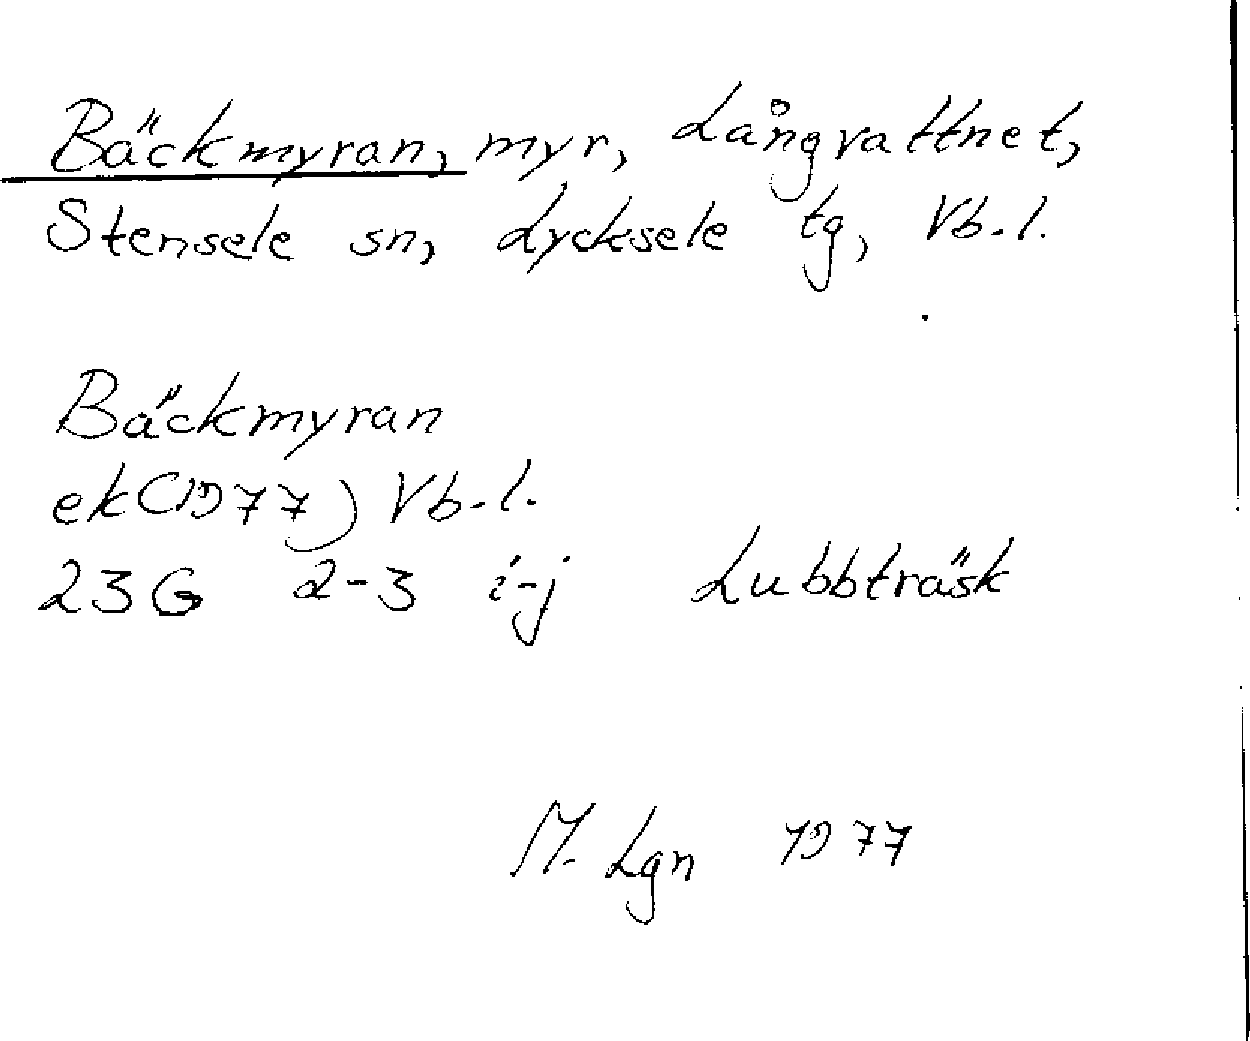 Bäckmyran, myr, Långvattnet,
Stensele sn, Lycksele tg, Vb.l.
Bäckmyran
ek(1977) Vb.l.
23G 2-3 i-j Lubbträsk
M. Lgn 1977